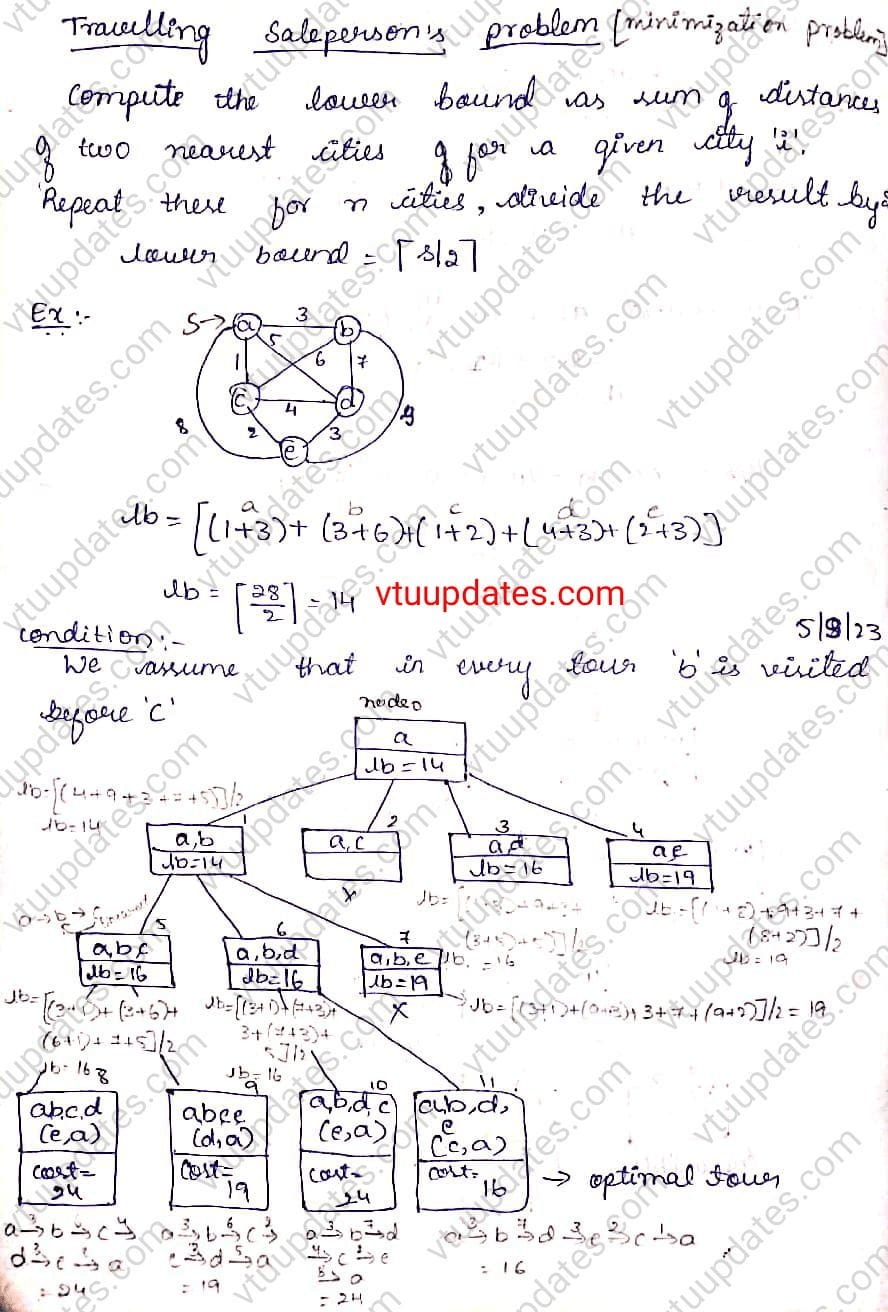 Travelling Saleperson's problem [minimization problem]
Compute the lower bound as sum of distances
of two nearest cities of for a given city 'i'.
Repeat these for n cities, divide the result by
lower bound = ⌈s/2⌉
Ex :-
S→ a 3 b
5
1 6 7
c 4 d
8 2 3 9
e
a b c d e
lb = [(1+3)+(3+6)+(1+2)+(4+3)+(2+3)]
lb = ⌈28/2⌉ = 14 vtuupdates.com
condition:- 5/9/23
We assume that in every tour 'b' is visited
before 'c'
node 0
a
lb = 14
lb=[(4+9+3+7+5)]/2
lb=14
1 2 3 4
a,b a,c a,d a,e
lb=14 x lb=16 lb=19
5 6 7
a,b,c a,b,d a,b,e
lb=16 lb=16 lb=19
x
lb=[(3+1)+(3+6)+
(6+1)+7+5]/2
lb=16
lb=[(3+1)+(7+3)+
3+(7+3)+
5]/2
lb=16
= 16
(8+2)]/2
lb=19
3+7+(9+2)]/2 = 19
8 9 10 11
a,b,c,d
(e,a)
cost=
24
abce
(d,a)
cost=
19
a,b,d,c
(e,a)
cost=
24
a,b,d,
e
(c,a)
cost=
16 → optimal tour
= 24
= 19
= 24
a 3→ b 7→ d 3→ e 2→ c 1→ a
= 16
vtuupdates.com